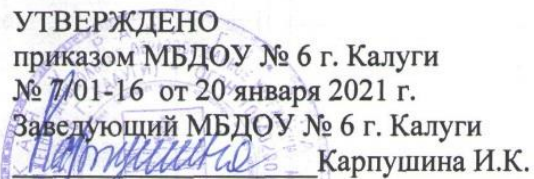 УТВЕРЖДЕНО
приказом МБДОУ № 6 г. Калуги
№ 7/01-16 от 20 января 2021 г.
Заведующий МБДОУ № 6 г. Калуги
Карпушина И.К.